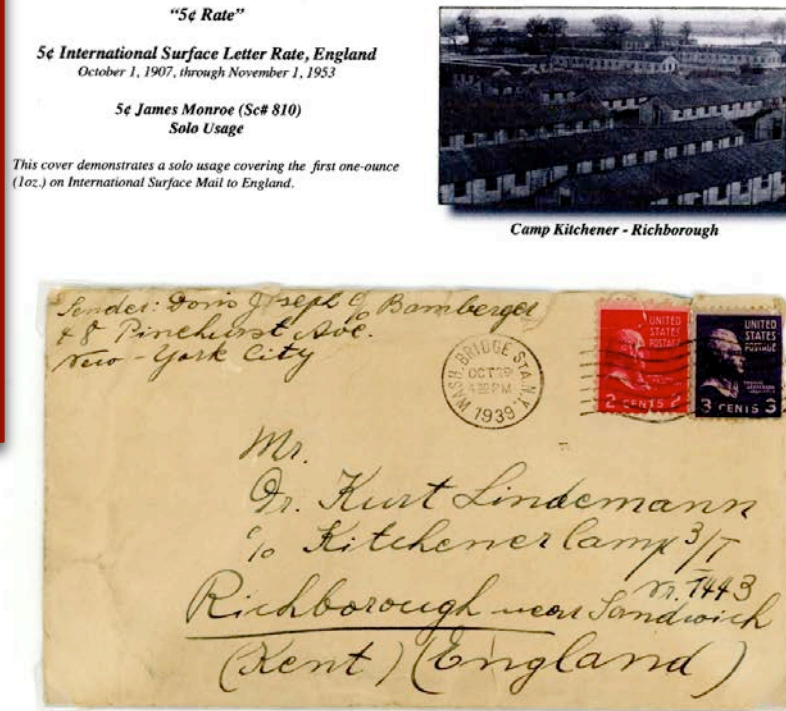 “5¢ Rate”
5¢ International Surface Letter Rate, England
October 1, 1907, through November 1, 1953
5¢ James Monroe (Sc# 810)
Solo Usage
This cover demonstrates a solo usage covering the first one-ounce
(1oz.) on International Surface Mail to England.
Camp Kitchener - Richborough
Sender: Doris Joseph c/o Bamberger
48 Pinehurst Ave.
New-York City
WASH. BRIDGE STA. N.Y.
OCT
PM
1939
UNITED
STATES
POSTAGE
2 CENTS 2
UNITED
STATES
POSTAGE
3 CENTS 3
Mr.
Dr. Kurt Lindemann
c/o Kitchener Camp 3/I
Nr. 1443
Richborough near Sandwich
(Kent) (England)